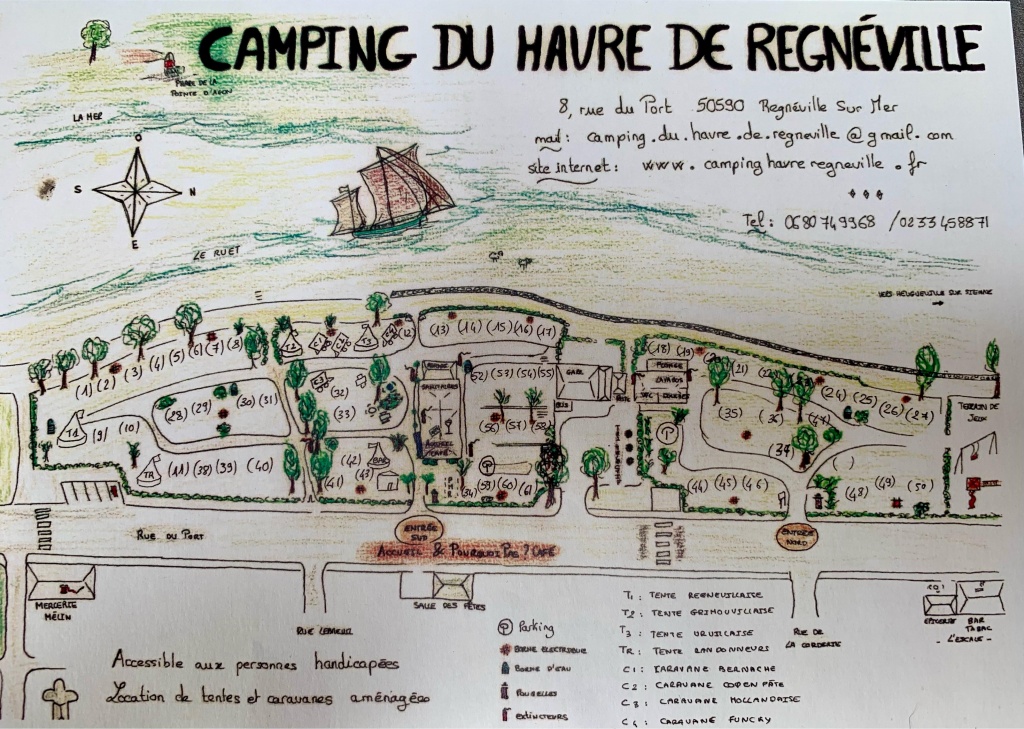 CAMPING DU HAVRE DE REGNÉVILLE
8, rue du Port 50590 Regnéville Sur Mer
mail: camping.du.havre.de.regneville@gmail.com
site internet: www.campinghavreregneville.fr
Tel: 0680749968 /0233458871
PHARE DE LA
POINTE D'AGON
LA MER
O
S N
E
LE RUET
VERS HEUGUEVILLE SUR SIENNE
(1) (2) (3) (4) (5) (6) (7) (8)
T3
(12)
(13) (14) (15) (16) (17)
(18) (19)
(21)
(24) (25) (26) (27)
(28) (29) (30) (31)
(32)
(33)
SANITAIRES
ACCUEIL
CAFÉ
(52) (53) (54) (55)
(56) (57) (58)
P
(59) (60) (61)
(35)
(36)
(34)
TERRAIN DE
JEUX
T1 (9) (10)
TR (11) (38) (39) (40)
(41) (42) (43)
(44) (45) (46)
( )
(48) (49) (50)
RUE DU PORT
ENTRÉE
SUD
ACCUEIL & POURQUOI PAS ? CAFÉ
ENTRÉE
NORD
MERCERIE
MÉLIN
RUE LEMIEUX
SALLE DES FÊTES
RUE DE
LA CORDERIE
EPICERIE
BAR
TABAC
- L'ESCALE -
Accessible aux personnes handicapées
Location de tentes et caravanes aménagées
P Parking
BORNE ELECTRIQUE
BORNE D'EAU
POUBELLES
EXTINCTEURS
T1 : TENTE REGNEVILLAISE
T2 : TENTE GRIMOUVILLAISE
T3 : TENTE URVILLAISE
TR : TENTE RANDONNEURS
C1 : CARAVANE BERNACHE
C2 : CARAVANE COPEN PÂTE
C3 : CARAVANE HOLLANDAISE
C4 : CARAVANE FUNCKY